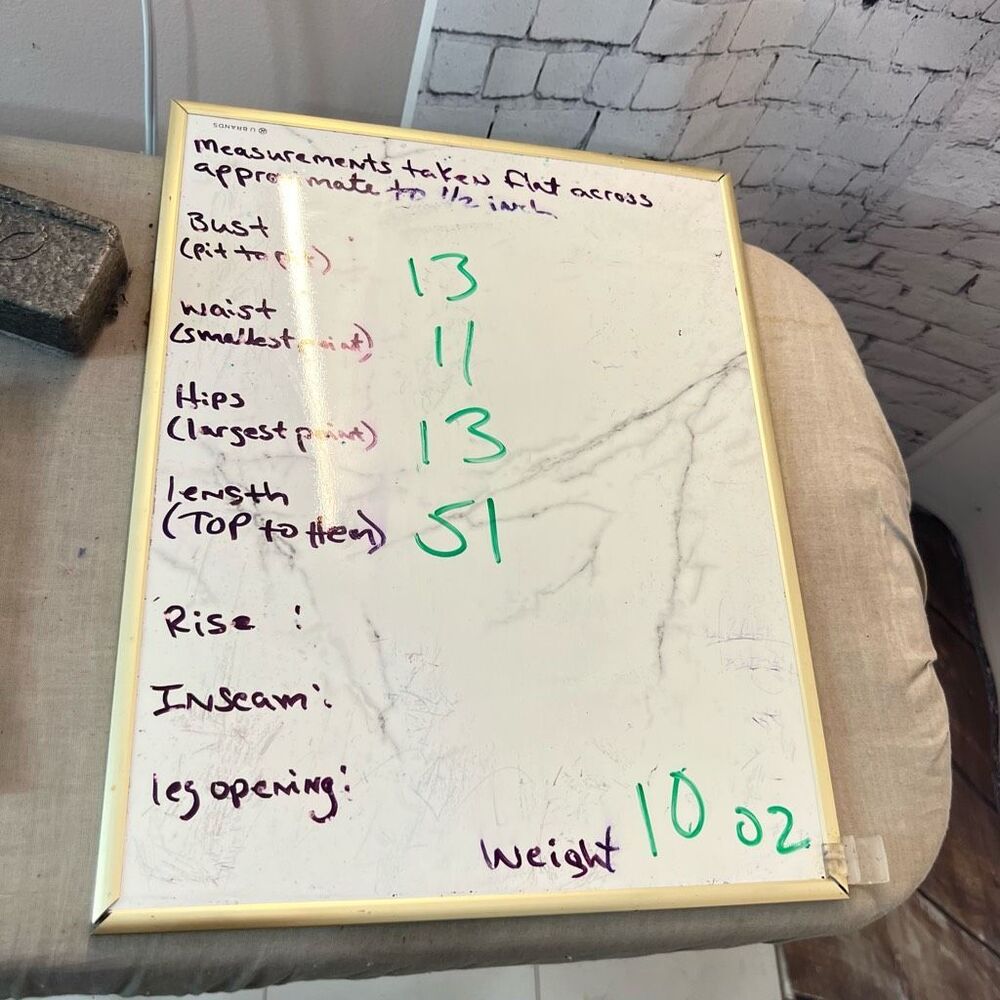 U BRANDS
measurements taken flat across
approximate to 1/2 inch
Bust
(pit to pit)
13
waist
(smallest point)
11
Hips
(largest point)
13
length
(TOP to Hem)
51
Rise :
INseam:
leg opening:
Weight 10 oz